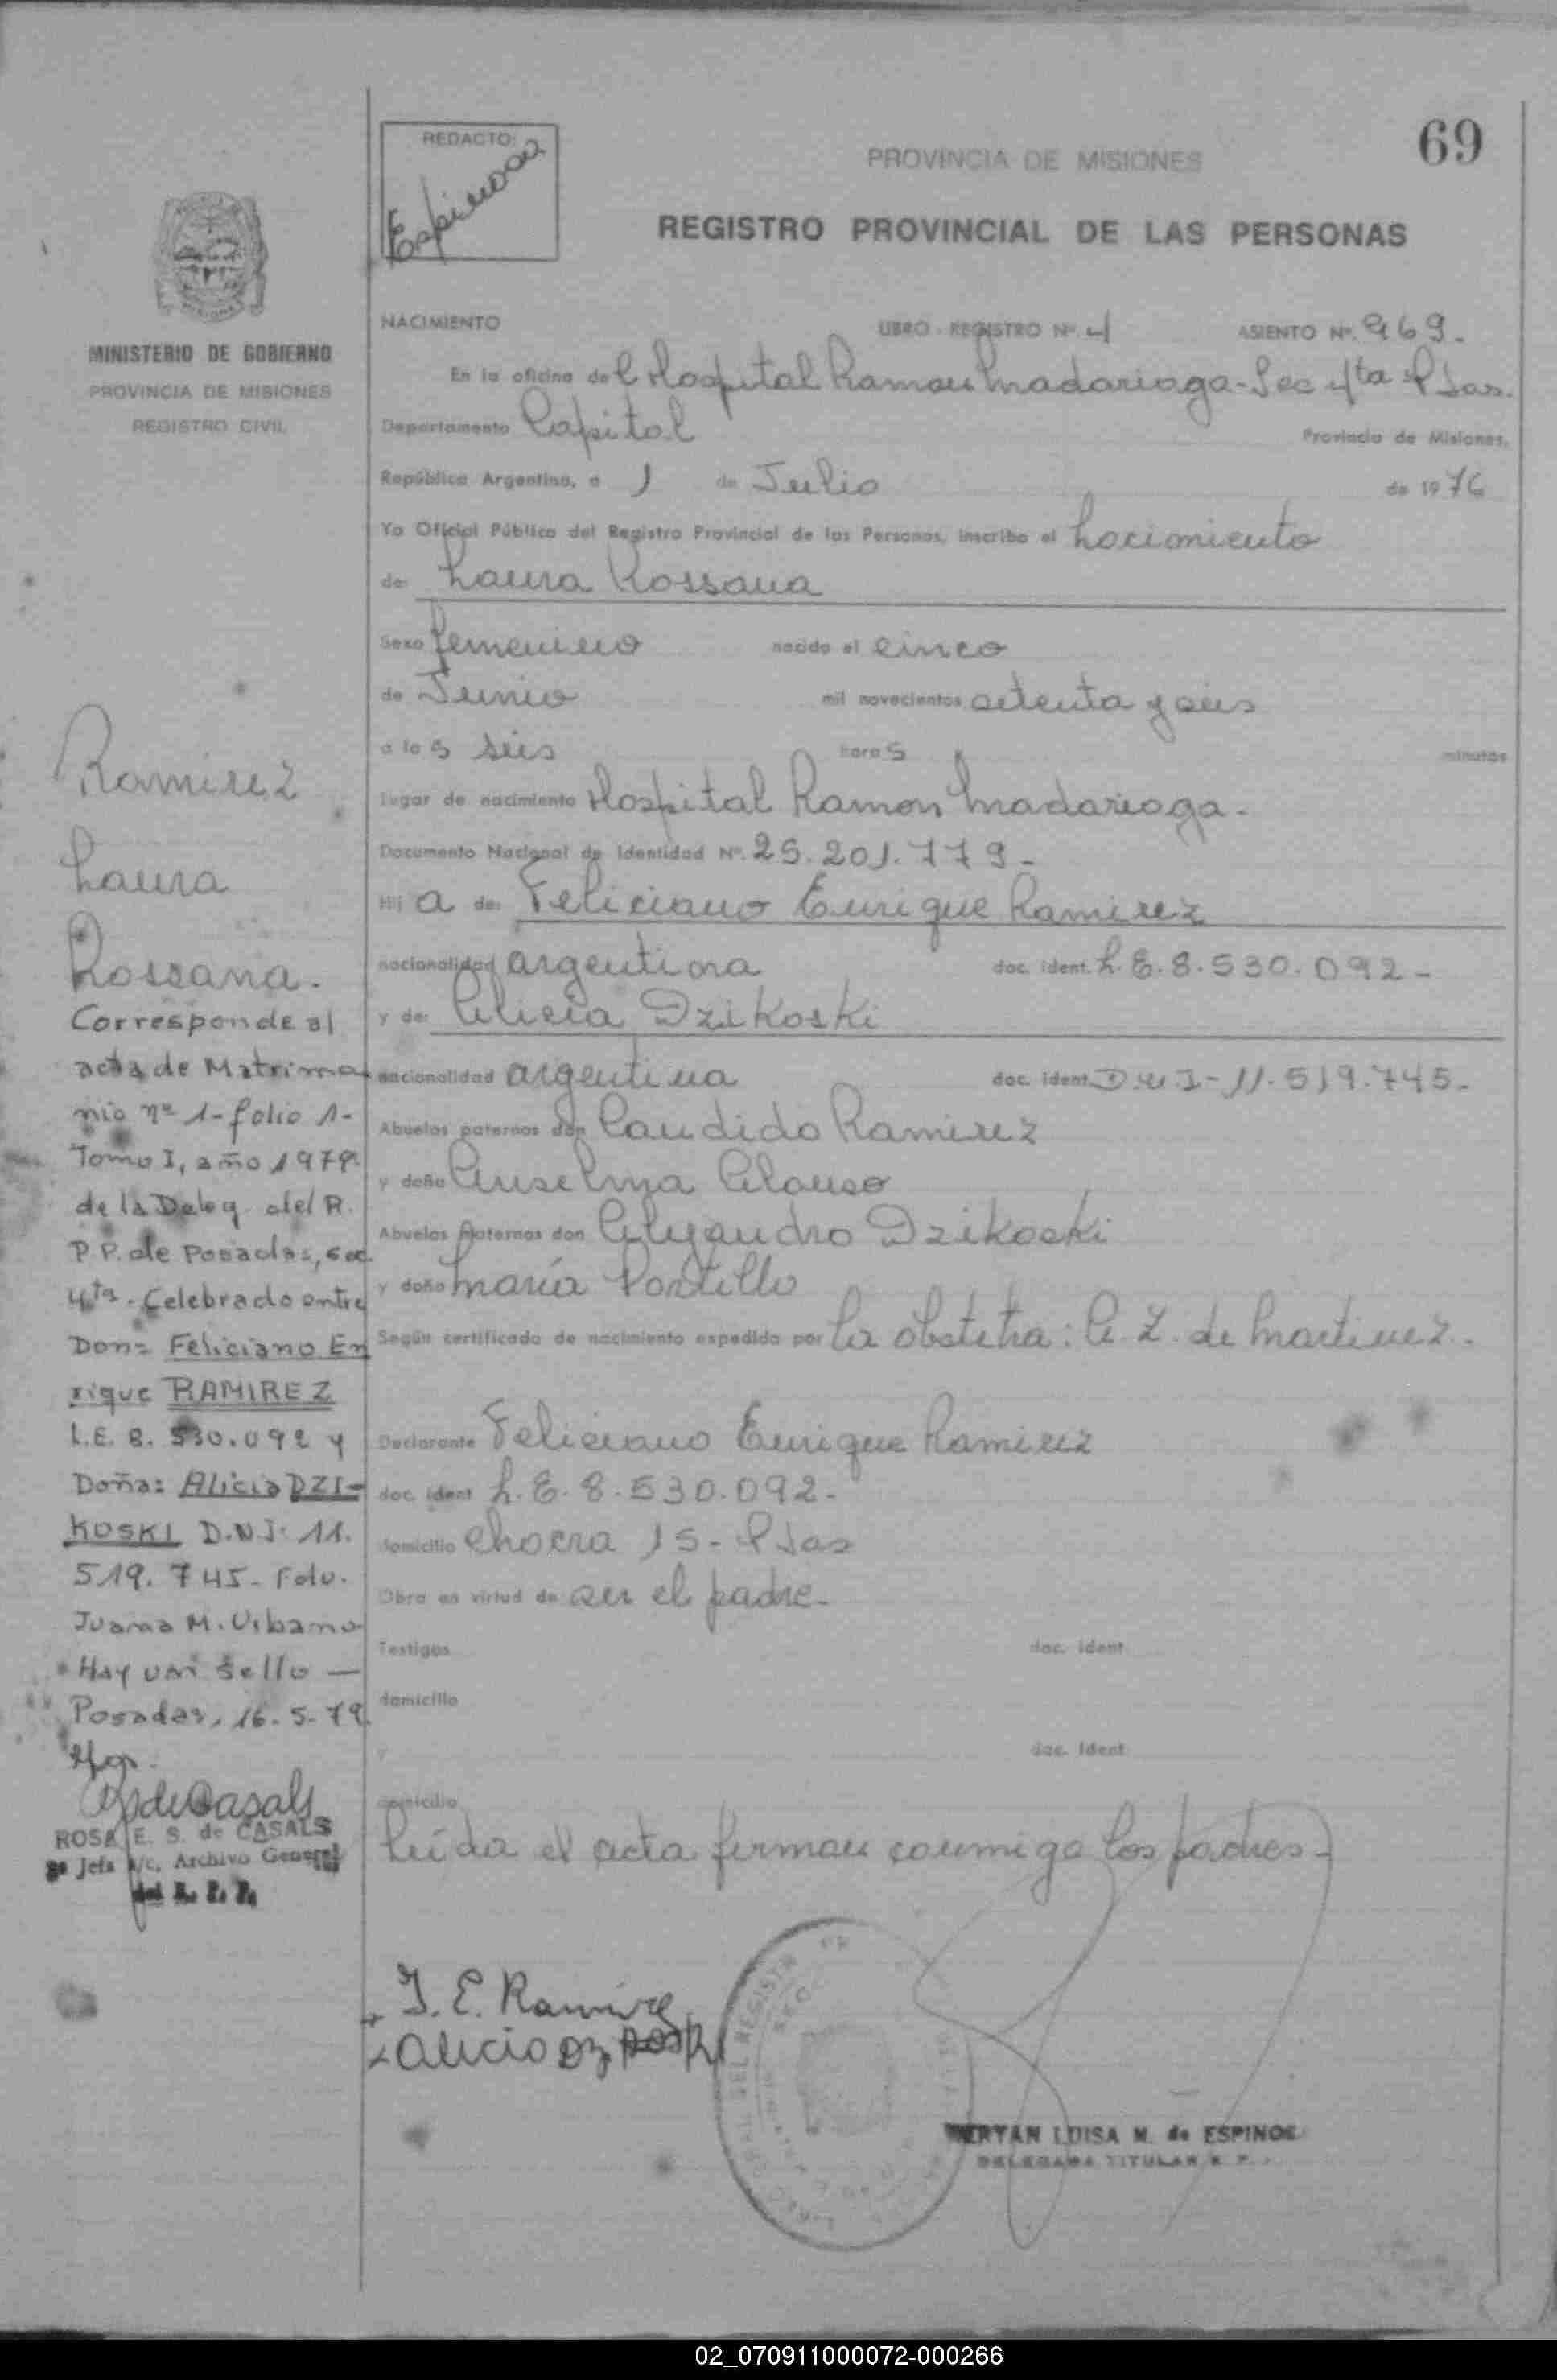 69
REDACTO:
Espinosa
PROVINCIA DE MISIONES
REGISTRO PROVINCIAL DE LAS PERSONAS
MINISTERIO DE GOBIERNO
PROVINCIA DE MISIONES
REGISTRO CIVIL
NACIMIENTO LIBRO - REGISTRO Nº. 4 ASIENTO Nº. 969.-
En la oficina del Hospital Ramon Madariaga - Sec 4ta Pdas.
Departamento Capital Provincia de Misiones,
República Argentina, a 1 de Julio de 1976
Yo Oficial Público del Registro Provincial de las Personas, inscribo el nacimiento
de: Laura Rossana
Sexo femenino nacido el cinco
de Junio mil novecientos setenta y seis
a las seis horas minutos
lugar de nacimiento Hospital Ramon Madariaga.-
Documento Nacional de Identidad Nº. 25.201.779-
Hija de: Feliciano Enrique Ramirez
nacionalidad argentina doc. ident. L.E. 8.530.092-
y de: Alicia Dzikoski
nacionalidad argentina doc. ident. D.N.I- 11.519.745-
Abuelos paternos don Candido Ramirez
y doña Anselma Alonso
Abuelos Maternos don Alejandro Dzikoski
y doña María Portillo
Según certificado de nacimiento expedido por la obstetra: A. Z. de Martinez.-
Declarante Feliciano Enrique Ramirez
doc. ident L.E. 8.530.092-
domicilio chacra 15- Pdas
Obra en virtud de ser el padre-
Testigos doc. ident
domicilio
y doc. ident
domicilio
Leída el acta firman conmigo los padres-
Ramirez
Laura
Rossana.
Corresponde al
acta de Matrimo
nio nº 1- folio 1-
Tomo I, año 1979-
de la Deleg. del R.
P.P. de Posadas, Sec
4ta. Celebrado entre
Don: Feliciano En
rique RAMIREZ
L.E. 8.530.092 y
Doña: Alicia DZI-
KOSKI D.N.I. 11.
519.745- Fdo.
Juana M. Urbano
Hay un sello —
Posadas, 16-5-79.
ROSA E. S. de CASALS
Jefa A/c. Archivo General
del R. P. P.
F. E. Ramirez
Alicia Dzikoski
LUISA M. de ESPINOS
DELEGADA TITULAR R. P.
02_070911000072-000266